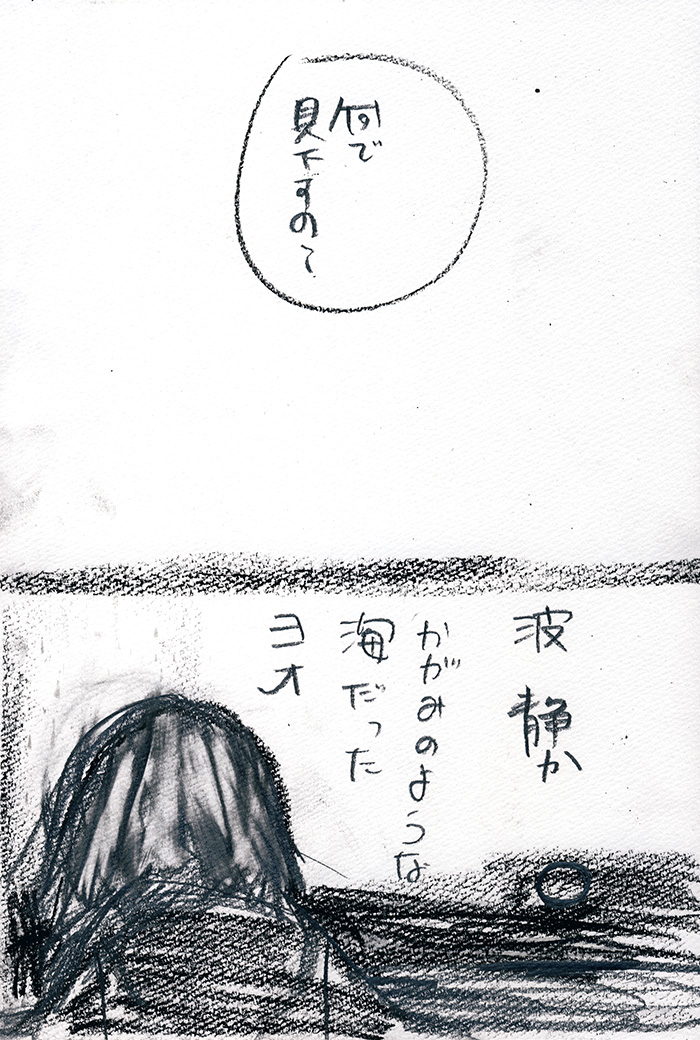 何で
見下すの?
波 静か
かがみのような
海だった
ヨオ